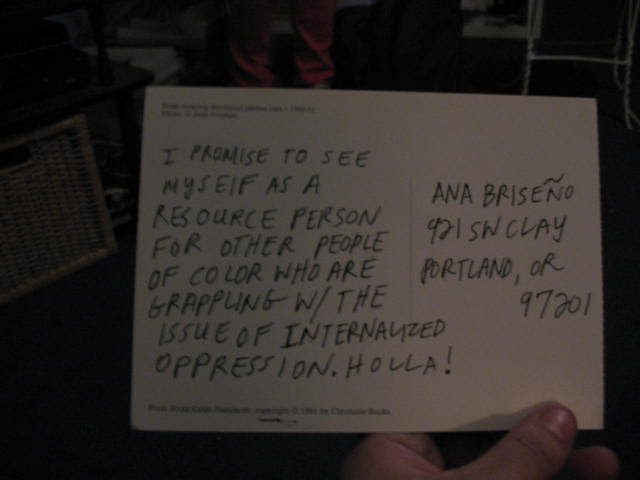 I PROMISE TO SEE
MYSELF AS A
RESOURCE PERSON
FOR OTHER PEOPLE
OF COLOR WHO ARE
GRAPPLING W/ THE
ISSUE OF INTERNALIZED
OPPRESSION. HOLLA!
ANA BRISEÑO
921 SW CLAY
PORTLAND, OR
97201
From Frida Kahlo Postcards, copyright © 1991 by Chronicle Books.